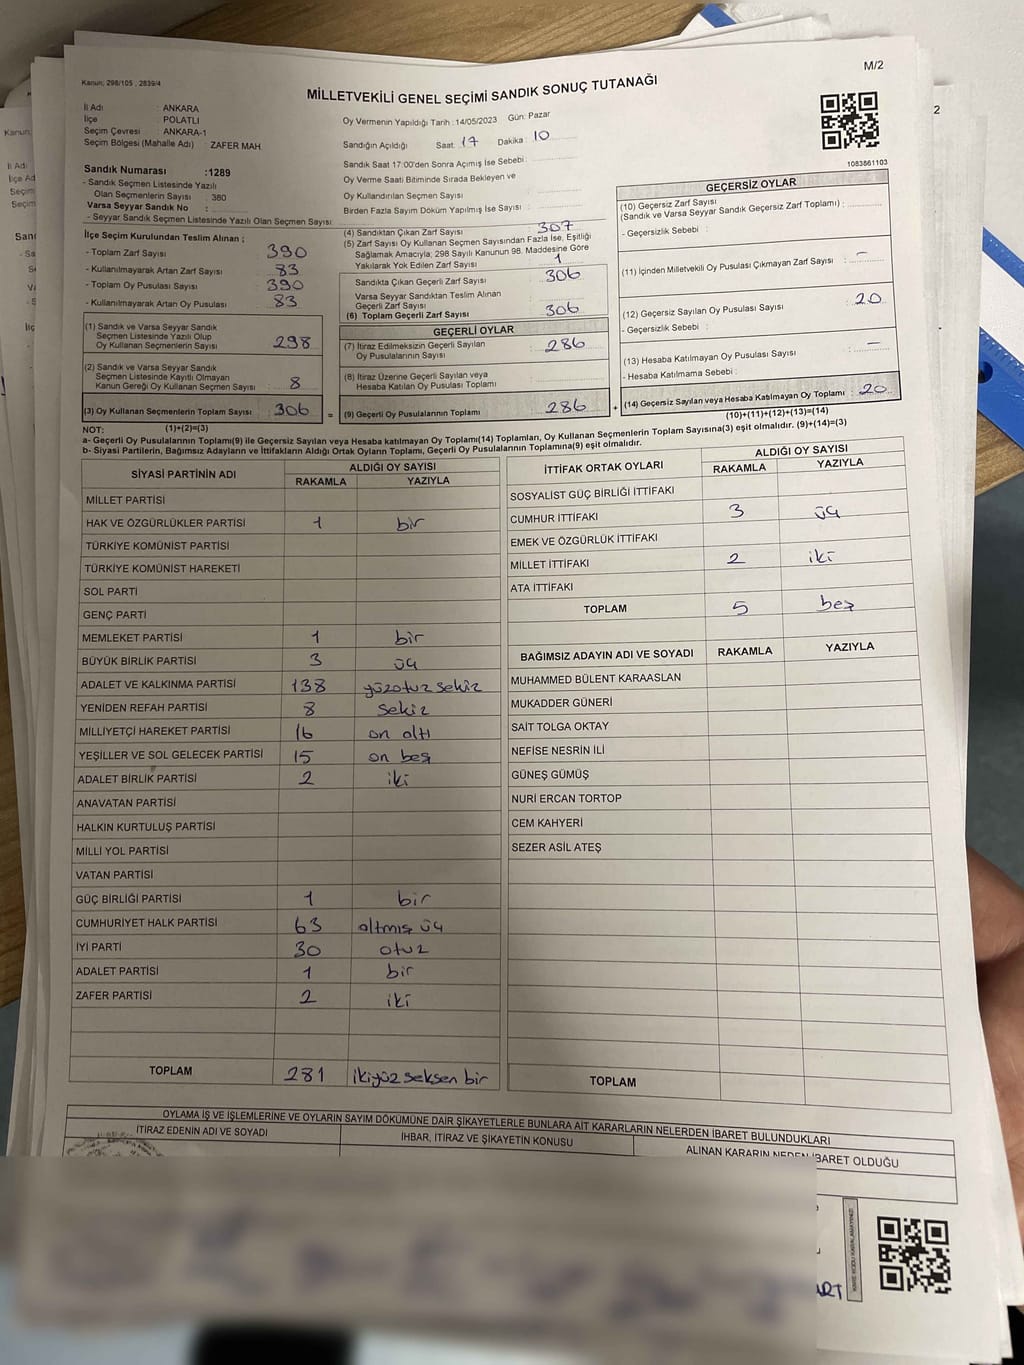 Kanun; 298/105 , 2839/4
M/2
MİLLETVEKİLİ GENEL SEÇİMİ SANDIK SONUÇ TUTANAĞI
İl Adı : ANKARA
İlçe : POLATLI
Seçim Çevresi : ANKARA-1
Seçim Bölgesi (Mahalle Adı) : ZAFER MAH.
Oy Vermenin Yapıldığı Tarih : 14/05/2023 Gün: Pazar
Sandığın Açıldığı Saat: 17 Dakika: 10
Sandık Saat 17:00'den Sonra Açımış İse Sebebi :
Oy Verme Saati Bitiminde Sırada Bekleyen ve
Oy Kullandırılan Seçmen Sayısı :
Birden Fazla Sayım Döküm Yapılmış İse Sayısı :
1083861103
Sandık Numarası :1289
- Sandık Seçmen Listesinde Yazılı
Olan Seçmenlerin Sayısı : 380
Varsa Seyyar Sandık No :
- Seyyar Sandık Seçmen Listesinde Yazılı Olan Seçmen Sayısı:
İlçe Seçim Kurulundan Teslim Alınan ;
- Toplam Zarf Sayısı : 390
- Kullanılmayarak Artan Zarf Sayısı : 83
- Toplam Oy Pusulası Sayısı : 390
- Kullanılmayarak Artan Oy Pusulası : 83
(1) Sandık ve Varsa Seyyar Sandık
Seçmen Listesinde Yazılı Olup
Oy Kullanan Seçmenlerin Sayısı : 298
(2) Sandık ve Varsa Seyyar Sandık
Seçmen Listesinde Kayıtlı Olmayan
Kanun Gereği Oy Kullanan Seçmen Sayısı : 8
(3) Oy Kullanan Seçmenlerin Toplam Sayısı : 306 =
(1)+(2)=(3)
(4) Sandıktan Çıkan Zarf Sayısı : 307
(5) Zarf Sayısı Oy Kullanan Seçmen Sayısından Fazla İse, Eşitliği
Sağlamak Amacıyla; 298 Sayılı Kanunun 98. Maddesine Göre
Yakılarak Yok Edilen Zarf Sayısı : 1
Sandıkta Çıkan Geçerli Zarf Sayısı : 306
Varsa Seyyar Sandıktan Teslim Alınan
Geçerli Zarf Sayısı :
(6) Toplam Geçerli Zarf Sayısı : 306
GEÇERLİ OYLAR
(7) İtiraz Edilmeksizin Geçerli Sayılan
Oy Pusulalarının Sayısı : 286
(8) İtiraz Üzerine Geçerli Sayılan veya
Hesaba Katılan Oy Pusulası Toplamı :
(9) Geçerli Oy Pusulalarının Toplamı : 286 +
GEÇERSİZ OYLAR
(10) Geçersiz Zarf Sayısı
(Sandık ve Varsa Seyyar Sandık Geçersiz Zarf Toplamı) :
- Geçersizlik Sebebi :
(11) İçinden Milletvekili Oy Pusulası Çıkmayan Zarf Sayısı : –
(12) Geçersiz Sayılan Oy Pusulası Sayısı : 20
- Geçersizlik Sebebi :
(13) Hesaba Katılmayan Oy Pusulası Sayısı : –
- Hesaba Katılmama Sebebi :
(14) Geçersiz Sayılan veya Hesaba Katılmayan Oy Toplamı : 20
(10)+(11)+(12)+(13)=(14)
NOT:
a- Geçerli Oy Pusulalarının Toplamı(9) ile Geçersiz Sayılan veya Hesaba katılmayan Oy Toplamı(14) Toplamları, Oy Kullanan Seçmenlerin Toplam Sayısına(3) eşit olmalıdır. (9)+(14)=(3)
b- Siyasi Partilerin, Bağımsız Adayların ve İttifakların Aldığı Ortak Oyların Toplamı, Geçerli Oy Pusulalarının Toplamına(9) eşit olmalıdır.
SİYASİ PARTİNİN ADI ALDIĞI OY SAYISI
RAKAMLA YAZIYLA
MİLLET PARTİSİ
HAK VE ÖZGÜRLÜKLER PARTİSİ 1 bir
TÜRKİYE KOMÜNİST PARTİSİ
TÜRKİYE KOMÜNİST HAREKETİ
SOL PARTİ
GENÇ PARTİ
MEMLEKET PARTİSİ 1 bir
BÜYÜK BİRLİK PARTİSİ 3 üç
ADALET VE KALKINMA PARTİSİ 138 yüzotuz sekiz
YENİDEN REFAH PARTİSİ 8 sekiz
MİLLİYETÇİ HAREKET PARTİSİ 16 on altı
YEŞİLLER VE SOL GELECEK PARTİSİ 15 on beş
ADALET BİRLİK PARTİSİ 2 iki
ANAVATAN PARTİSİ
HALKIN KURTULUŞ PARTİSİ
MİLLİ YOL PARTİSİ
VATAN PARTİSİ
GÜÇ BİRLİĞİ PARTİSİ 1 bir
CUMHURİYET HALK PARTİSİ 63 altmış üç
İYİ PARTİ 30 otuz
ADALET PARTİSİ 1 bir
ZAFER PARTİSİ 2 iki
TOPLAM 281 ikiyüz seksen bir
İTTİFAK ORTAK OYLARI ALDIĞI OY SAYISI
RAKAMLA YAZIYLA
SOSYALİST GÜÇ BİRLİĞİ İTTİFAKI
CUMHUR İTTİFAKI 3 üç
EMEK VE ÖZGÜRLÜK İTTİFAKI
MİLLET İTTİFAKI 2 iki
ATA İTTİFAKI
TOPLAM 5 beş
BAĞIMSIZ ADAYIN ADI VE SOYADI RAKAMLA YAZIYLA
MUHAMMED BÜLENT KARAASLAN
MUKADDER GÜNERİ
SAİT TOLGA OKTAY
NEFİSE NESRİN İLİ
GÜNEŞ GÜMÜŞ
NURİ ERCAN TORTOP
CEM KAHYERİ
SEZER ASİL ATEŞ
TOPLAM
OYLAMA İŞ VE İŞLEMLERİNE VE OYLARIN SAYIM DÖKÜMÜNE DAİR ŞİKAYETLERLE BUNLARA AİT KARARLARIN NELERDEN İBARET BULUNDUKLARI
İTİRAZ EDENİN ADI VE SOYADI
İHBAR, İTİRAZ VE ŞİKAYETİN KONUSU
ALINAN KARARIN NEDEN İBARET OLDUĞU